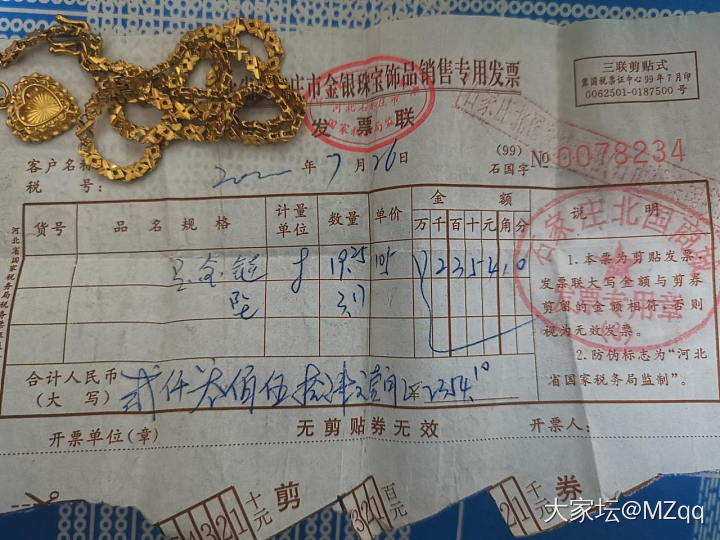 庄市金银珠宝饰品销售专用发票
发票联
三联剪贴式
冀国税票证中心99年7月印
0062501-0187500号
客户名称
税号:
年7月26日
(99)
石国字
№0078234
货号 品名规格 计量单位 数量 单价 金额 说明
万千百十元角分
足金链 g 19.25 105 ¥235410
坠 3.17
1.本票为剪贴发票
发票联大写金额与剪券
剪留的金额相符,否则
视为无效发票。
2.防伪标志为“河北
省国家税务局监制”。
合计人民币
(大写)
贰仟叁佰伍拾肆元壹角 ¥2354.10
开票单位(章) 无剪贴券无效 开票人:
4321十元 剪 321百元 21千元 券
石家庄北国商城
发票专用章
国家税务局监制
大家坛@MZqq